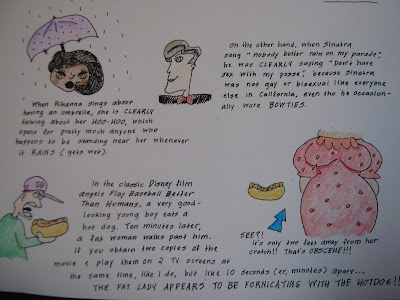 When Rihanna sings about
having an umbrella, she is CLEARLY
talking about her HOO-HOO, which
opens for pretty much anyone who
happens to be standing near her whenever
it RAINS (gets wet).
On the other hand, when Sinatra
song "nobody better rain on my parade",
he was CLEARLY saying "Don't have
sex with my posse", because Sinatra
was not gay or bisexual like everyone
else in California, even tho he occasion-
ally wore BOWTIES.
In the classic Disney film
Angels Play Baseball Better
Than Humans, a very good-
looking young boy eats a
hot dog. Ten minutes later,
a fat woman walks past him.
If you obtain two copies of the
movie & play them on 2 TV screens at
the same time, like I do, but like 10 seconds (er, minutes) apart...
THE FAT LADY APPEARS TO BE FORNICATING WITH THE HOTDOG!!
SEE?!
It's only two feet away from her
crotch!! That's OBSCENE!!!